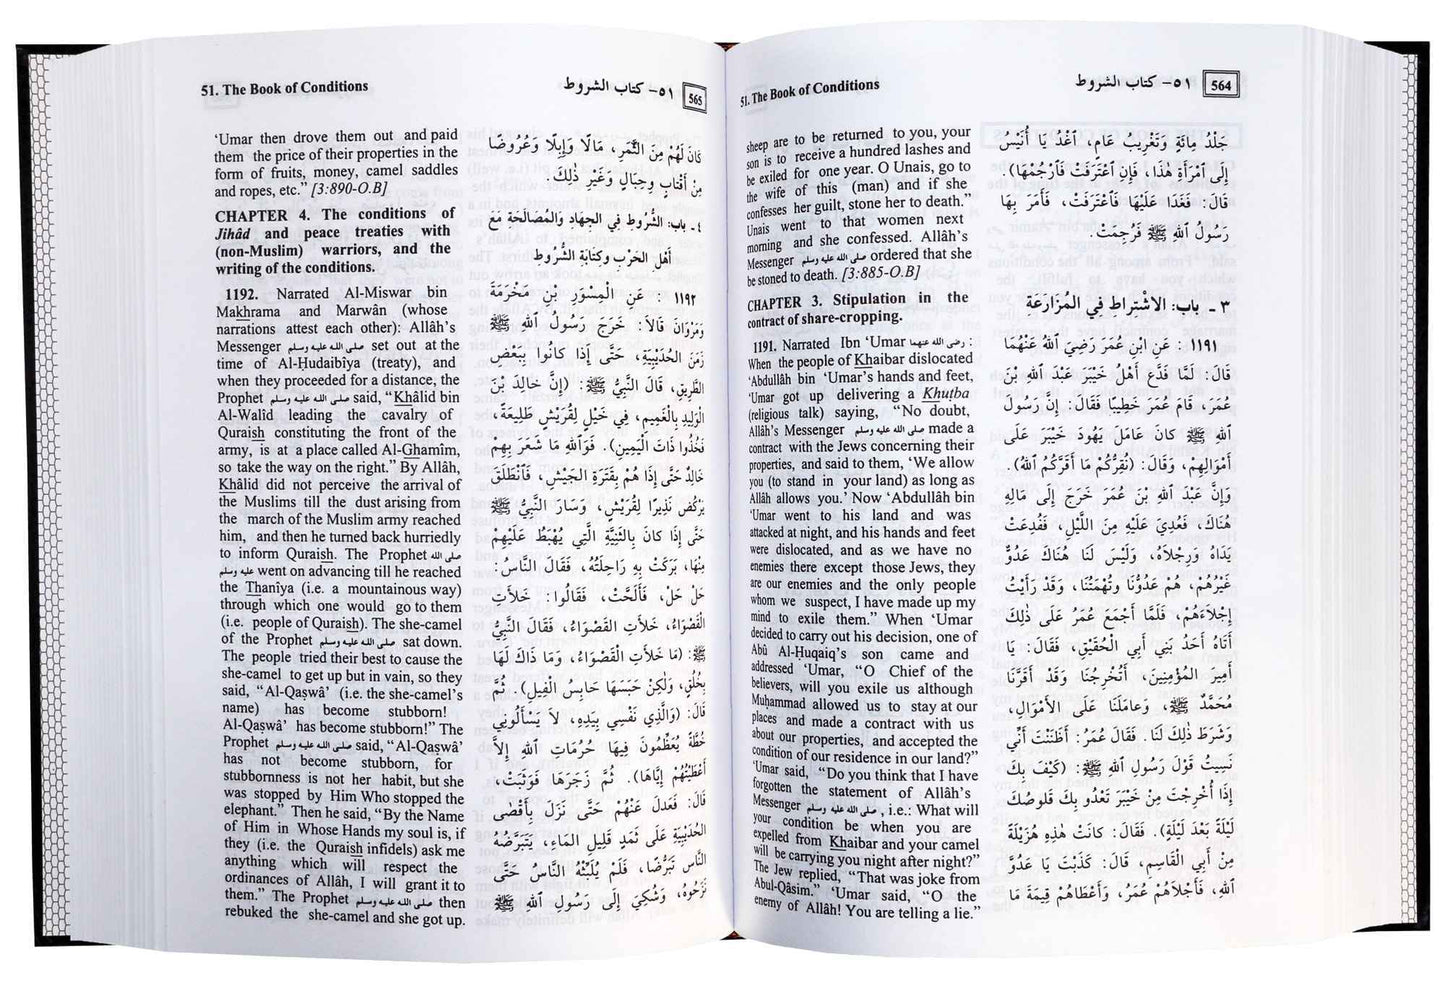 51. The Book of Conditions
٥١- كتاب الشروط
564
sheep are to be returned to you, your
son is to receive a hundred lashes and
be exiled for one year. O Unais, go to
the wife of this (man) and if she
confesses her guilt, stone her to death.”
Unais went to that women next
morning and she confessed. Allâh’s
Messenger صلى الله عليه وسلم ordered that she
be stoned to death. [3:885-O.B]
CHAPTER 3. Stipulation in the
contract of share-cropping.
1191. Narrated Ibn ‘Umar رضي الله عنهما :
When the people of Khaibar dislocated
‘Abdullâh bin ‘Umar’s hands and feet,
‘Umar got up delivering a Khuṭba
(religious talk) saying, “No doubt,
Allâh’s Messenger صلى الله عليه وسلم made a
contract with the Jews concerning their
properties, and said to them, ‘We allow
you (to stand in your land) as long as
Allâh allows you.’ Now ‘Abdullâh bin
‘Umar went to his land and was
attacked at night, and his hands and feet
were dislocated, and as we have no
enemies there except those Jews, they
are our enemies and the only people
whom we suspect, I have made up my
mind to exile them.” When ‘Umar
decided to carry out his decision, one of
Abû Al-Ḥuqaiq’s son came and
addressed ‘Umar, “O Chief of the
believers, will you exile us although
Muḥammad allowed us to stay at our
places and made a contract with us
about our properties, and accepted the
condition of our residence in our land?”
‘Umar said, “Do you think that I have
forgotten the statement of Allâh’s
Messenger صلى الله عليه وسلم , i.e.: What will
your condition be when you are
expelled from Khaibar and your camel
will be carrying you night after night?”
The Jew replied, “That was joke from
Abul-Qâsim.” ‘Umar said, “O the
enemy of Allâh! You are telling a lie.”
جَلْدُ مِائَةٍ وَتَغْرِيبُ عَامٍ، اغْدُ يَا أُنَيْسُ
إِلَى امْرَأَةِ هٰذَا، فَإِنِ اعْتَرَفَتْ فَارْجُمْهَا).
قَالَ: فَغَدَا عَلَيْهَا فَاعْتَرَفَتْ، فَأَمَرَ بِهَا
رَسُولُ اللهِ ﷺ فَرُجِمَتْ.
٣ ـ باب: الاشْتراط فِي المُزَارَعَة
١١٩١ : عَنِ ابْنِ عُمَرَ رَضِيَ اللهُ عَنْهُمَا
قَالَ: لَمَّا فَدَّعَ أَهْلُ خَيْبَرَ عَبْدَ اللهِ بْنَ
عُمَرَ، قَامَ عُمَرُ خَطِيبًا فَقَالَ: إِنَّ رَسُولَ
اللهِ ﷺ كانَ عَامَلَ يَهُودَ خَيْبَرَ عَلَى
أَمْوَالِهِمْ، وَقَالَ: (نُقِرُّكُمْ مَا أَقَرَّكُمُ اللهُ).
وَإِنَّ عَبْدَ اللهِ بْنَ عُمَرَ خَرَجَ إِلَى مَالِهِ
هُنَاكَ، فَعُدِيَ عَلَيْهِ مِنَ اللَّيْلِ، فَفُدِعَتْ
يَدَاهُ وَرِجْلَاهُ، وَلَيْسَ لَنَا هُنَاكَ عَدُوٌّ
غَيْرُهُمْ، هُمْ عَدُوُّنَا وَتُهْمَتُنَا، وَقَدْ رَأَيْتُ
إِجْلَاءَهُمْ، فَلَمَّا أَجْمَعَ عُمَرُ عَلَى ذٰلِكَ
أَتَاهُ أَحَدُ بَنِي أَبِي الْحُقَيْقِ، فَقَالَ: يَا
أَمِيرَ المُؤْمِنِينَ، أَتُخْرِجُنَا وَقَدْ أَقَرَّنَا
مُحَمَّدٌ ﷺ، وَعَامَلَنَا عَلَى الْأَمْوَالِ،
وَشَرَطَ ذٰلِكَ لَنَا. فَقَالَ عُمَرُ: أَظَنَنْتَ أَنِّي
نَسِيتُ قَوْلَ رَسُولِ اللهِ ﷺ: (كَيْفَ بِكَ
إِذَا أُخْرِجْتَ مِنْ خَيْبَرَ تَعْدُو بِكَ قَلُوصُكَ
لَيْلَةً بَعْدَ لَيْلَةٍ). فَقَالَ: كانَتْ هٰذِهِ هُزَيْلَةً
مِنْ أَبِي الْقَاسِمِ، قَالَ: كَذَبْتَ يَا عَدُوَّ
اللهِ، فَأَجْلَاهُمْ عُمَرُ، وَأَعْطَاهُمْ قِيمَةَ مَا
51. The Book of Conditions
٥١- كتاب الشروط
565
‘Umar then drove them out and paid
them the price of their properties in the
form of fruits, money, camel saddles
and ropes, etc.” [3:890-O.B]
CHAPTER 4. The conditions of
Jihâd and peace treaties with
(non-Muslim) warriors, and the
writing of the conditions.
1192. Narrated Al-Miswar bin
Makhrama and Marwân (whose
narrations attest each other): Allâh’s
Messenger صلى الله عليه وسلم set out at the
time of Al-Ḥudaibîya (treaty), and
when they proceeded for a distance, the
Prophet صلى الله عليه وسلم said, “Khâlid bin
Al-Walîd leading the cavalry of
Quraish constituting the front of the
army, is at a place called Al-Ghamîm,
so take the way on the right.” By Allâh,
Khâlid did not perceive the arrival of
the Muslims till the dust arising from
the march of the Muslim army reached
him, and then he turned back hurriedly
to inform Quraish. The Prophet صلى الله
عليه وسلم went on advancing till he reached
the Thanîya (i.e. a mountainous way)
through which one would go to them
(i.e. people of Quraish). The she-camel
of the Prophet صلى الله عليه وسلم sat down.
The people tried their best to cause the
she-camel to get up but in vain, so they
said, “Al-Qaṣwâ’ (i.e. the she-camel’s
name) has become stubborn!
Al-Qaṣwâ’ has become stubborn!” The
Prophet صلى الله عليه وسلم said, “Al-Qaṣwâ’
has not become stubborn, for
stubbornness is not her habit, but she
was stopped by Him Who stopped the
elephant.” Then he said, “By the Name
of Him in Whose Hands my soul is, if
they (i.e. the Quraish infidels) ask me
anything which will respect the
ordinances of Allâh, I will grant it to
them.” The Prophet صلى الله عليه وسلم then
rebuked the she-camel and she got up.
كانَ لَهُمْ مِنَ الثَّمَرِ، مَالًا وَإِبِلًا وَعُرُوضًا
مِنْ أَقْتَابٍ وَحِبَالٍ وَغَيْرِ ذٰلِكَ.
٤ ـ باب: الشُّرُوط فِي الجِهَادِ وَالمُصَالَحَةِ مَعَ
أهْل الحَرْب وكِتابَة الشُّرُوط
١١٩٢ : عَنِ الْمِسْوَرِ بْنِ مَخْرَمَةَ
وَمَرْوَانَ قَالَا: خَرَجَ رَسُولُ اللهِ ﷺ
زَمَنَ الحُدَيْبِيَةِ، حَتَّى إِذَا كانُوا بِبَعْضِ
الطَّرِيقِ، قَالَ النَّبِيُّ ﷺ: (إِنَّ خالِدَ بْنَ
الْوَلِيدِ بِالْغَمِيمِ، فِي خَيْلٍ لِقُرَيْشٍ طَلِيعَةً،
فَخُذُوا ذَاتَ الْيَمِينِ). فَوَاللهِ مَا شَعَرَ بِهِمْ
خالِدٌ حَتَّى إِذَا هُمْ بِقَتَرَةِ الجَيْشِ، فَانْطَلَقَ
يَرْكُضُ نَذِيرًا لِقُرَيْشٍ، وَسَارَ النَّبِيُّ ﷺ
حَتَّى إِذَا كانَ بِالثَّنِيَّةِ الَّتِي يُهْبَطُ عَلَيْهِمْ
مِنْهَا، بَرَكَتْ بِهِ رَاحِلَتُهُ، فَقَالَ النَّاسُ:
حَلْ حَلْ، فَأَلَحَّتْ، فَقَالُوا: خَلَأَتِ
الْقَصْوَاءُ، خَلَأَتِ الْقَصْوَاءُ، فَقَالَ النَّبِيُّ
ﷺ: (مَا خَلَأَتِ الْقَصْوَاءُ، وَمَا ذَاكَ لَهَا
بِخُلُقٍ، وَلٰكِنْ حَبَسَهَا حابِسُ الْفِيلِ). ثُمَّ
قَالَ: (وَالَّذِي نَفْسِي بِيَدِهِ، لَا يَسْأَلُونِي
خُطَّةً يُعَظِّمُونَ فِيهَا حُرُمَاتِ اللهِ إِلَّا
أَعْطَيْتُهُمْ إِيَّاهَا). ثُمَّ زَجَرَهَا فَوَثَبَتْ،
قَالَ: فَعَدَلَ عَنْهُمْ حَتَّى نَزَلَ بِأَقْصَى
الْحُدَيْبِيَةِ عَلَى ثَمَدٍ قَلِيلِ المَاءِ، يَتَبَرَّضُهُ
النَّاسُ تَبَرُّضًا، فَلَمْ يُلَبِّثْهُ النَّاسُ حَتَّى
نَزَحُوهُ، وَشُكِيَ إِلَى رَسُولِ اللهِ ﷺ